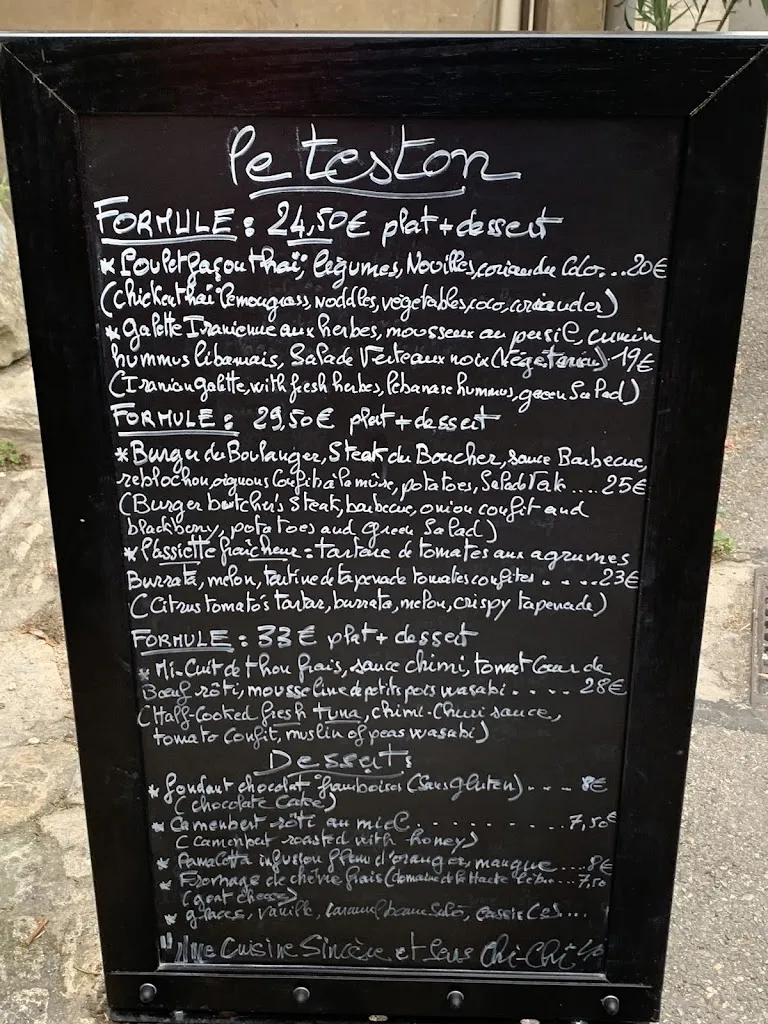 le teston
FORMULE : 24,50€ plat + dessert
* Poulet façon thaï, légumes, Nouilles, coriandre Coco...20€
(chicken thaï lemongrass, noddles, vegetables, coco, coriander)
* Galette Iranienne aux herbes, mousseux au persil, cumin
hummus libanais, Salade Verte aux noix (Végéterien) 19€
(Iranian galette, with fresh herbes, lebanase hummus, green Salad)
FORMULE : 29,50€ plat + dessert
* Burger du Boulanger, Steak du Boucher, sauce Barbecue,
reblochon, oignons Confit à la mûre, potatoes, Salade Verte....25€
(Burger butcher's Steak, barbecue, onion confit and
blackberry, potatoes and Green Salad)
* l'assiette fraîcheur : tartare de tomates aux agrumes
Burrata, melon, tartine de tapenade tomates confites.....23€
(Citrus tomato's tartar, burrata, melon, crispy tapenade)
FORMULE : 33€ plat + dessert
* Mi-Cuit de thon frais, sauce chimi, tomat Coeur de
Boeuf rôti, mousseline de petits pois wasabi.... 28€
(Half-Cooked fresh tuna, chimi-Churi sauce,
tomato Confit, muslin of peas wasabi)
Desserts
* fondant chocolat framboises (Sans Gluten)... 8€
(chocolate Cake)
* Camenbert rôti au miel........7,50€
(camenbert roasted with honey)
* Panacotta infusion fleur d'oranger, mangue....8€
* Fromage de chèvre frais (domaine de la Haute...7,50
(goat cheese)
* glaces, vanille, caramel beurre Salé, cassis
"Une Cuisine Sincère et Sans Chi-Chi"